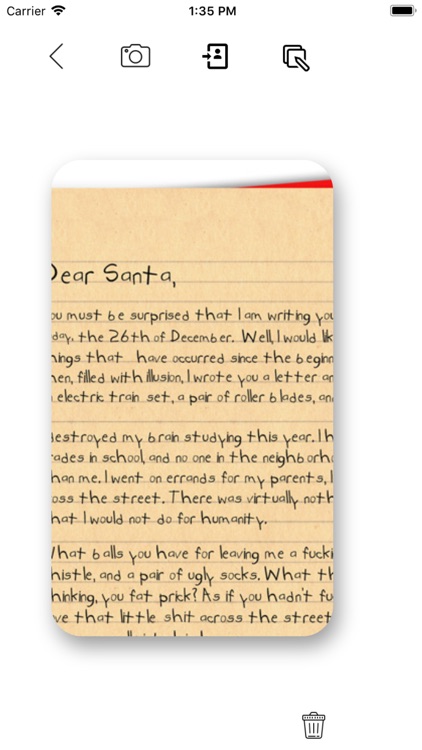 Carrier 1:35 PM
Dear Santa,
must be surprised that I am writing you
day, the 26th of December. Well, I would
that have occurred since the
filled with illusion, I wrote you a letter
electric train set, a pair of roller blades,
my brain studying this year. I
in school, and no one in the
me. I went on errands for my parents,
the street. There was virtually
I would not do for humanity.
What balls you have for leaving me a
and a pair of ugly socks. What
you fat prick? As if you hadn't
that little shit across the street